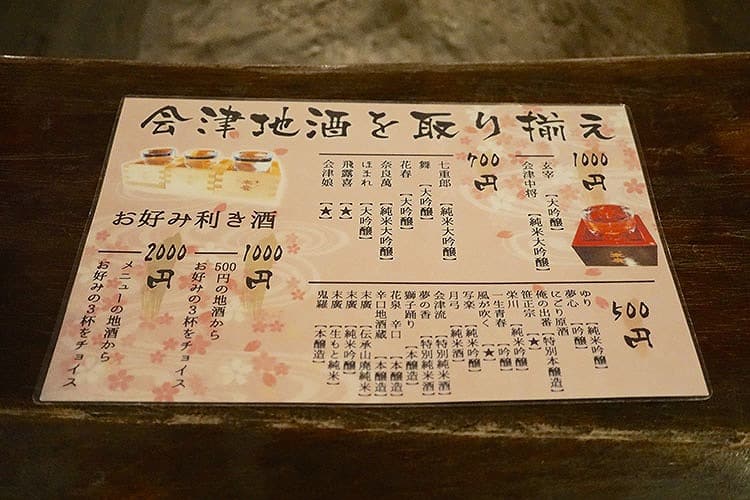 会津地酒を取り揃え
1000円
玄宰 【大吟醸】
会津中将 【純米大吟醸】
700円
七重郎 【純米大吟醸】
舞 【大吟醸】
花春 【大吟醸】
奈良萬 【純米大吟醸】
ほまれ 【大吟醸】
飛露喜 【★】
会津娘 【★】
500円
ゆり 【純米吟醸】
夢心 【吟醸】
にごり原酒
俺の出番 【特別本醸造】
笹正宗 【★】
栄川 【純米吟醸】
一生青春 【吟醸】
風が吹く 【★】
写楽 【純米吟醸】
月弓 【純米酒】
会津流 【特別純米酒】
夢の香 【特別純米酒】
獅子踊り 【本醸造】
花泉 辛口 【本醸造】
辛口地酒蔵 【本醸造】
末廣 【伝承山廃純米】
末廣 【純米吟醸】
末廣 【生もと純米】
鬼羅 【本醸造】
お好み利き酒
1000円
500円の地酒から
お好みの3杯をチョイス
2000円
メニューの地酒から
お好みの3杯をチョイス